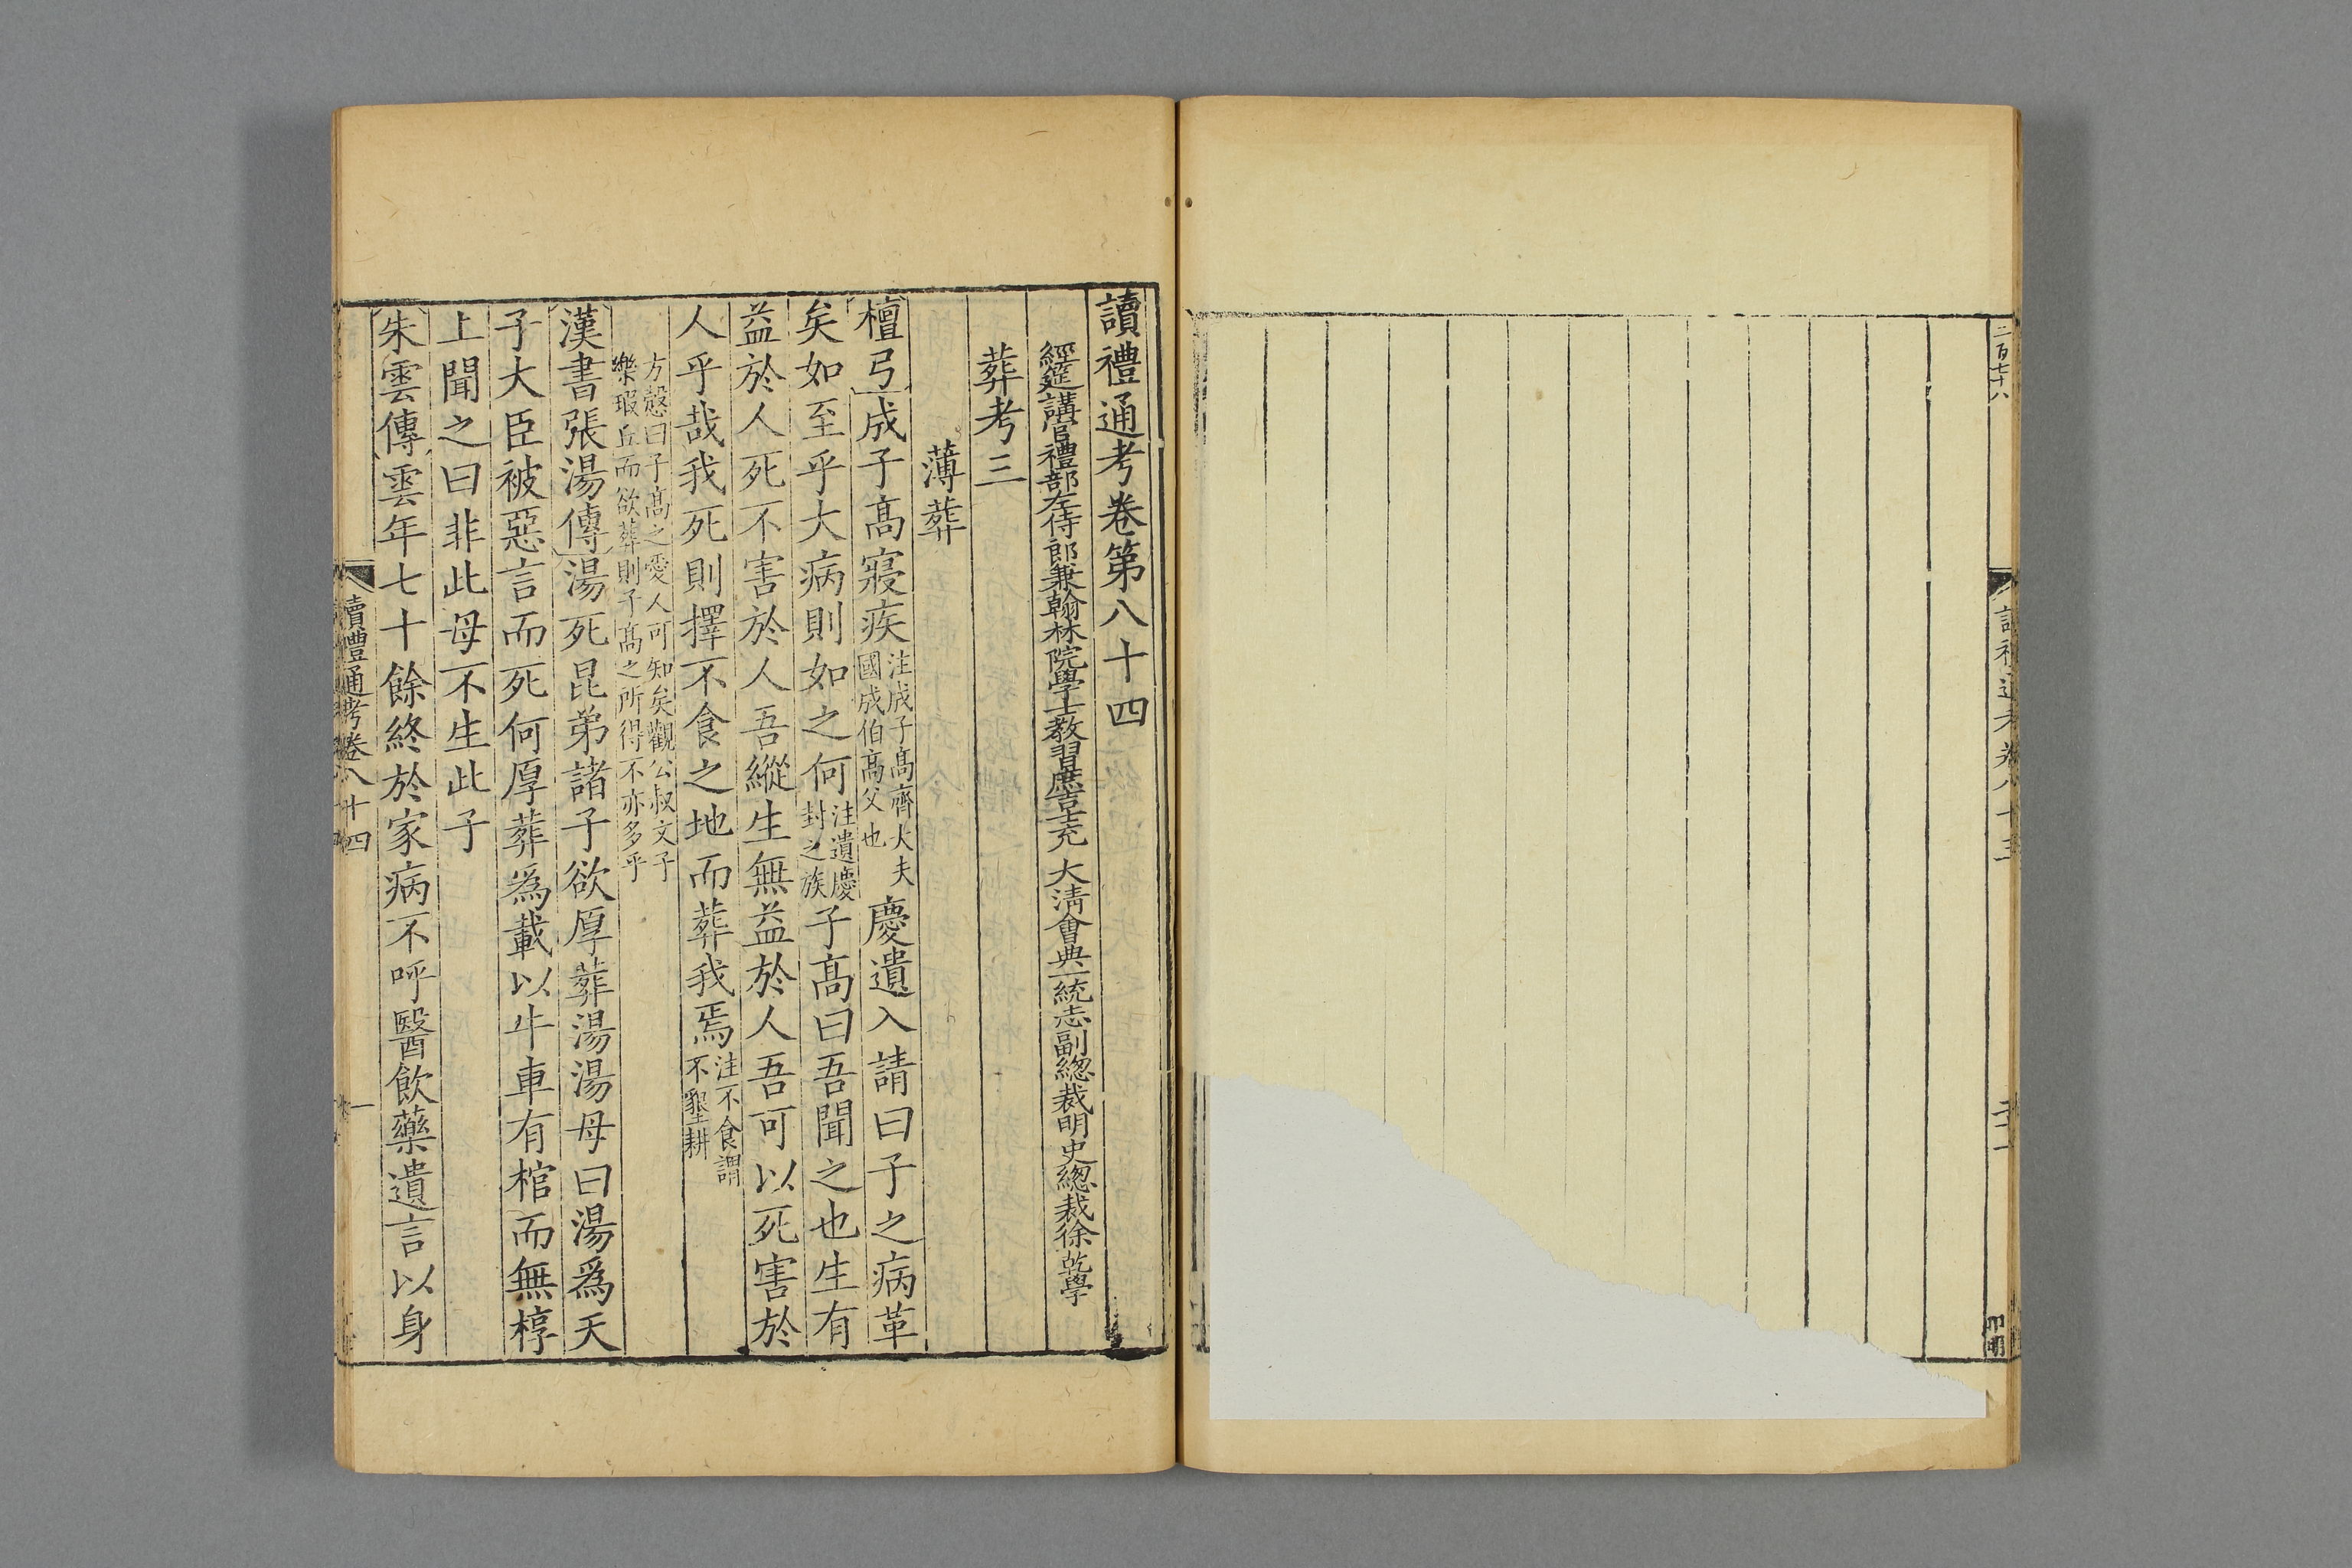 二百七十八
讀禮通考卷八十三
讀禮通考卷第八十四
經筵講官禮部左侍郎兼翰林院學士教習庶吉士充 大清會典一統志副總裁明史總裁徐乾學
葬考三
薄葬
檀弓成子高寢疾注成子高齊大夫國成伯高父也慶遺入請曰子之病革
矣如至乎大病則如之何注遺慶封之族子高曰吾聞之也生有
益於人死不害於人吾縱生無益於人吾可以死害於
人乎哉我死則擇不食之地而葬我焉注不食謂不墾耕
方慤曰子高之愛人可知矣觀公叔文子
樂瑕丘而欲葬則子高之所得不亦多乎
漢書張湯傳湯死昆弟諸子欲厚葬湯湯母曰湯爲天
子大臣被惡言而死何厚葬爲載以牛車有棺而無椁
上聞之曰非此母不生此子
朱雲傳雲年七十餘終於家病不呼醫飲藥遺言以身
讀禮通考卷八十四
一